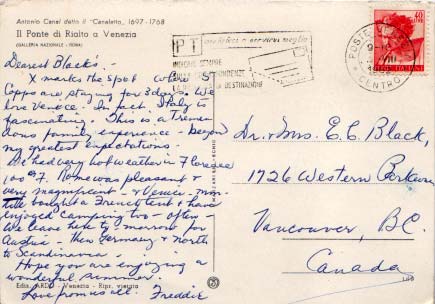 Antonio Canal detto il "Canaletto", 1697-1768
Il Ponte di Rialto a Venezia
(GALLERIA NAZIONALE - ROMA)
Dearest Blacks:-
X marks the spot where 5
Copps are staying for 3 days. We
love Venice. In fact, Italy is
fascinating. This is a tremen-
dous family experience - beyond
my greatest expectations.
We had very hot weather in Florence
100° F. Rome was pleasant &
very magnificent - & Venice
bought a French tent & have
enjoyed camping too - often -
We leave here to-morrow for
Austria - then Germany & north
to Scandinavia.
Hope you are enjoying a
wonderful summer.
Love from us all. Freddie
Ediz. ARDO - Venezia - Ripr. vietata
PT
INDICARE SEMPRE
DESTINAZIONE
POSTE
CENTRO
Dr. & Mrs. E. C. Black,
1726 Western Parkway
Vancouver, B.C.
Canada